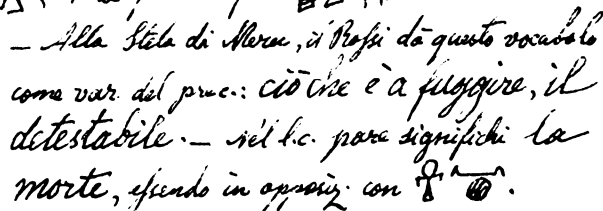 — Alla Stela di Meroe, il Rossi dà questo vocabolo
come var. del prec.: ciò che è a fuggire, il
detestabile. — Nel l.c. pare significhi la
morte, essendo in opposiz. con 𓋹 𓐍.